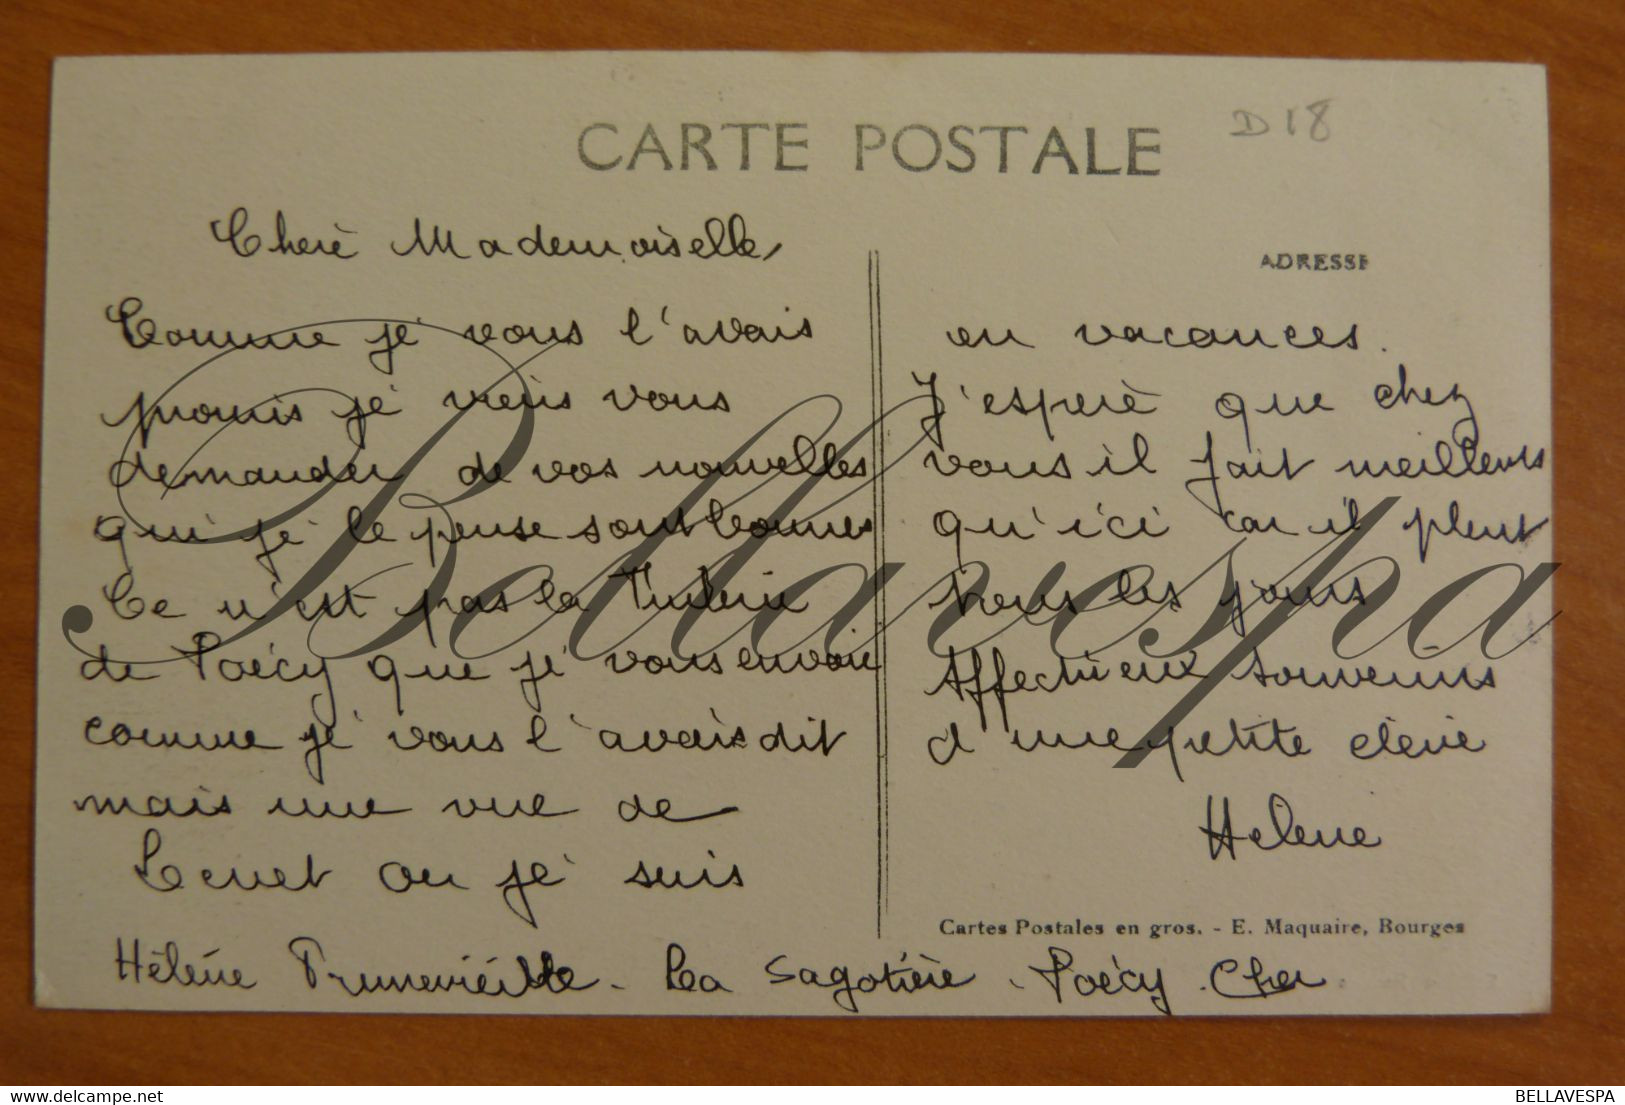 CARTE POSTALE
D18
Cherè Mademoiselle,
Comme je vous l'avais
promis je viens vous
demander de vos nouvelles
qui je le pense sont bonnes
Ce n'est pas la
de Poëcy que je vous envoie
comme je vous l'avais dit
mais une vue de
Genet ou je suis
ADRESSE
en vacances.
J'esperè que chez
vous il fait meilleurs
qu'ici car il pleut
tous les jours
Affectueux souvenirs
d'une petite elève
Helene
Cartes Postales en gros. - E. Maquaire, Bourges
Hélène - La Sagotière - Poëcy. Cher
Bellavespa
delcampe.net
BELLAVESPA